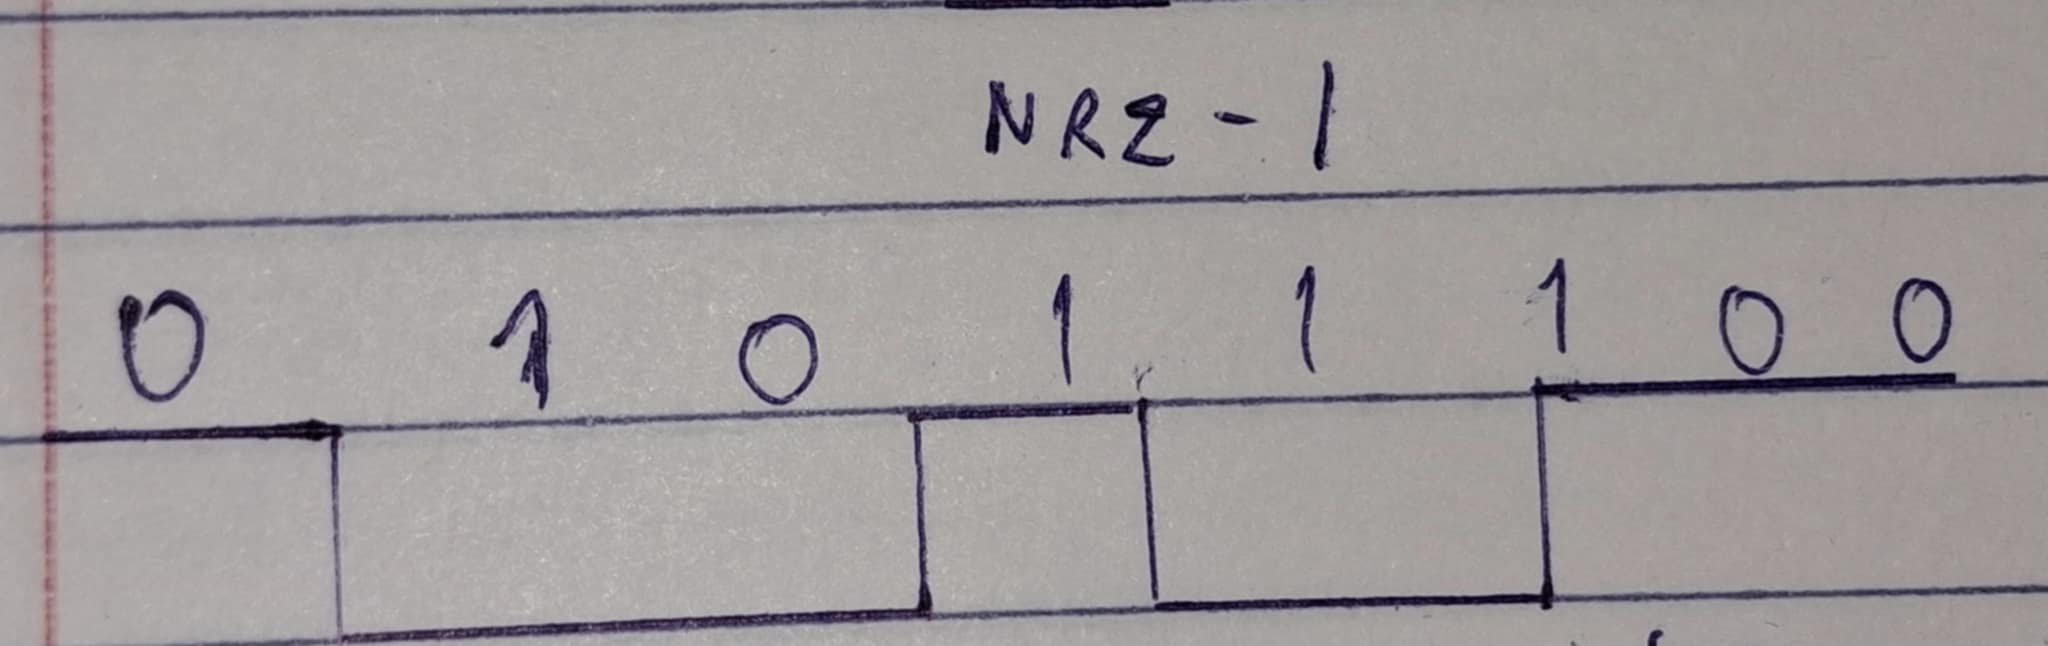 NRZ - I
0 1 0 1 1 1 0 0